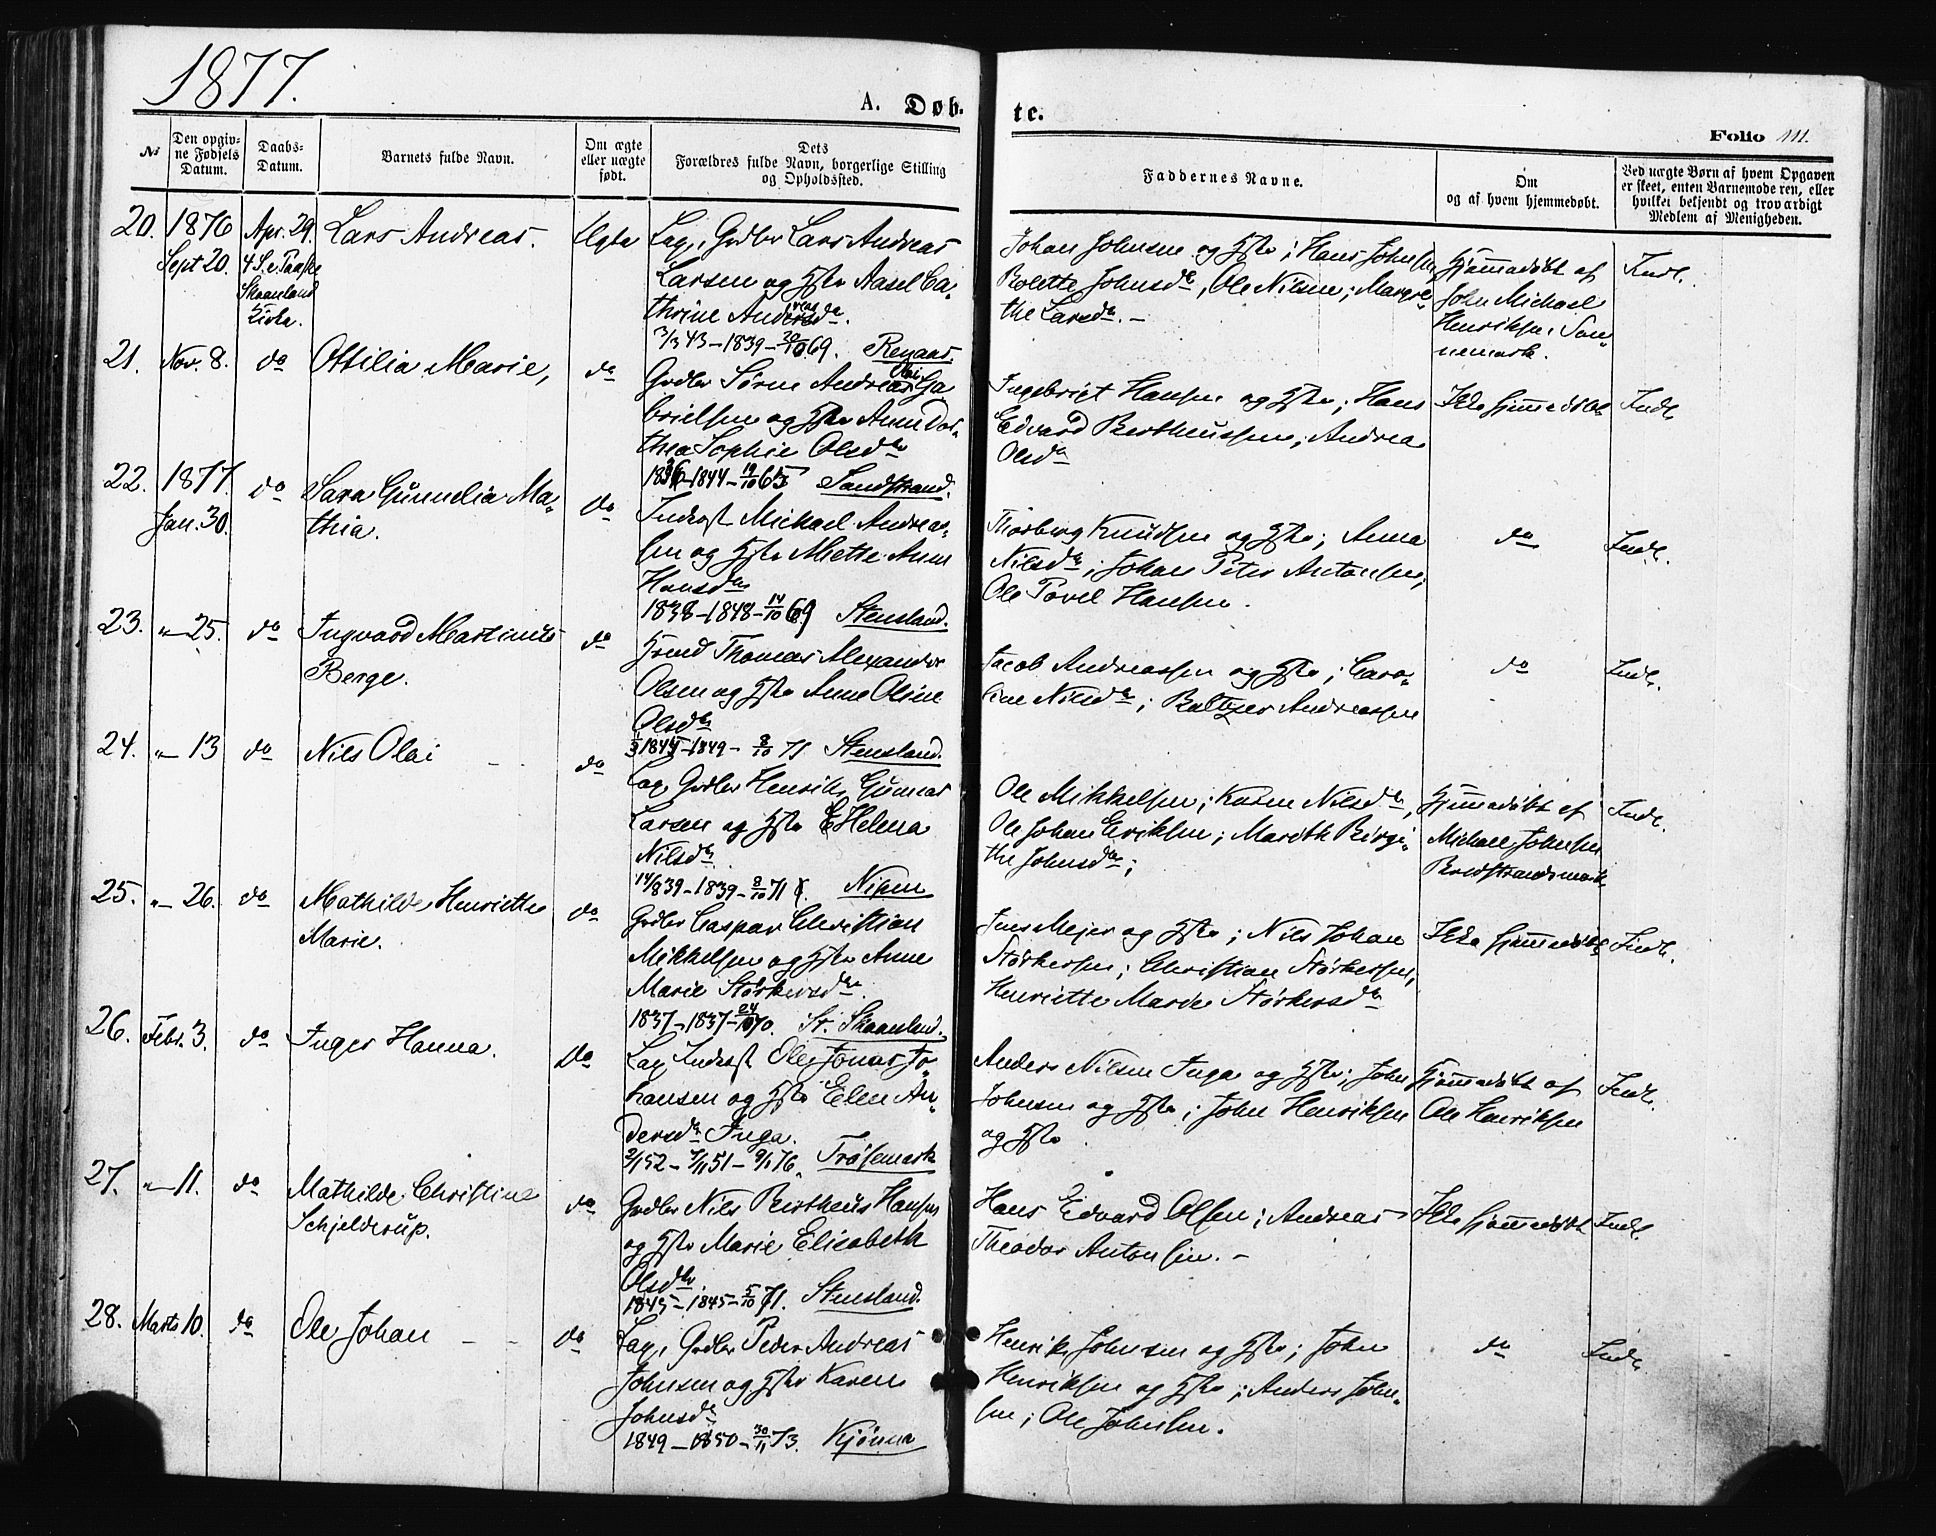 1877.
A. Døb-
te.
Folio 111.
No
Den opgiv-
ne Fødsels
Datum.
Daabs-
Datum.
Barnets fulde Navn.
Om ægte
eller uægte
født.
Dets
Forældres fulde Navn, borgerlige Stilling
og Opholdssted.
Faddernes Navne.
Om
og af hvem hjemmedøbt.
Ved uægte Børn af hvem Opgaven
er skeet, enten Barnemoderen, eller
hvilket bekjendt og troværdigt
Medlem af Menigheden.
20.
1876
Sept 20.
Apr. 29.
4 S. e Paaske
Skaanland
Kirke.
Lars Andreas.
Ægte
Lap, Gdbr Lars Andreas
Larsen og Hstr Aasel Ca-
thrine Andreasdr.
3/3 43 – 1839 – 20/10 69. Renaas.
Johan Johnsen og Hstr; Hans Johnsen,
Rolette Johnsdr, Ole Nilsen; Margre-
the Larsdr. –
Hjemmedøbt af
John Michael
Henriksen, San-
nemark.
Indl.
21.
Nov. 8.
do
Ottilia Marie,
do
Gdbr Sørn Andreas Olai Ga
brielsen og Hstr Anne Dor-
thea Sophie Olsdr
1836 – 1844 – 19/10 65 Sandstrand.
Ingebrigt Hansen og Hstr; Hans
Edvard Bertheussen; Andrea
Olsdr
Ikke hjemmedøbt
Indl.
22.
1877.
Jan. 30.
do
Sara Gunnelia Ma-
thia.
do
Inderst Michael Andreas-
sen og Hstr Mette Anna
Hansdr
1838 – 1848 – 14/10 69 Stensland.
Thorberg Knudsen og Hstr; Anna
Nilsdr; Johan Peter Antonsen;
Ole Povel Hansen.
do
Indl.
23.
" – 25.
do
Ingvard Martinus
Berge.
do
Thomas Alexander
Olsen og Hstr Anne Oline
Olsdr
1/3 1845 – 1849 – 8/10 71 Stensland.
Jacob Andreassen og Hstr; Caro-
line Nilsdr; Baltzer Andreassen
do
Indl.
24.
" – 13
do
Nils Olai
do
Lap, Gdbr Henrik Gunnar
Larsen og Hstr E Helena
Nilsdr
14/8 39 – 1839 – 8/10 71. Nipen
Ole Mikkelsen; Karen Nilsdr,
Ole Johan Eriksen; Marith Birgi-
the Johnsdr;
Hjemmedøbt af
Michael Johnsen
Bredstrandsmark
Indl.
25.
" – 26.
do
Mathilde Henriette
Marie.
do
Gdbr Caspar Christian
Mikkelsen og Hstr Anne
Marie Størkersdr.
1837 – 1837 – 24/10 70. St. Skaanland.
Jens Mejer og Hstr; Nils Johan
Størkersen; Christian Størkersen,
Henriette Marie Størkersdr
Ikke hjemmedøbt
Indl.
26.
Febr. 3.
do
Inger Hanna.
do
Lap, Inderst Ole Jonas Jo-
hansen og Hstr Elen An-
dersdr Inga.
2/1 52 – 7/11 51 – 9/1 76. Trøsemark
Anders Nilsen Inga og Hstr; John
Johnsen og Hstr; John Henriksen
og Hstr
Hjemmedøbt af
Ole Henriksen
Indl.
27.
" – 11.
do
Mathilde Christine
Schjelderup.
do
Gdbr Nils Bertheus Hansen
og Hstr Marie Elisabeth
Olsdr.
1845 – 1845 – 5/10 71. Stensland.
Hans Edvard Olsen; Andreas
Theodor Antonsen. –
Ikke hjemmedøbt
Indl.
28.
Marts 10.
do
Ole Johan
do
Lap, Gdbr Peder Andreas
Johnsen og Hstr Karen
Johnsdr
1849 – 1850 – 30/11 73. Kjønna
Henrik Johnsen og Hstr; John
Henriksen og Hstr; Anders John-
sen; Ole Johnsen.
do
Indl.